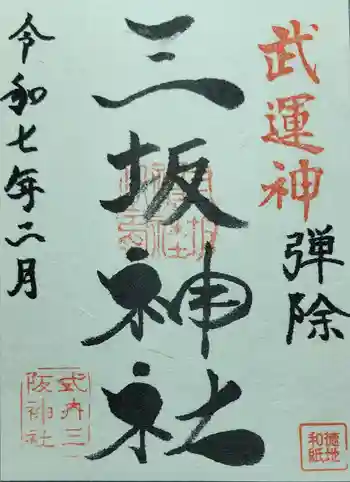 武運神
弾除
三坂神社
令和七年二月
式内三
阪神社
徳地
和紙